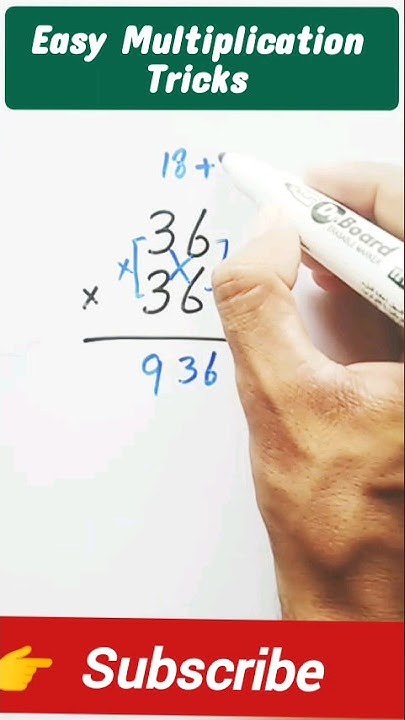 Easy Multiplication
Tricks
18+
36
× [×]
× 36
936
Board
ERASABLE MARKER
👉 Subscribe